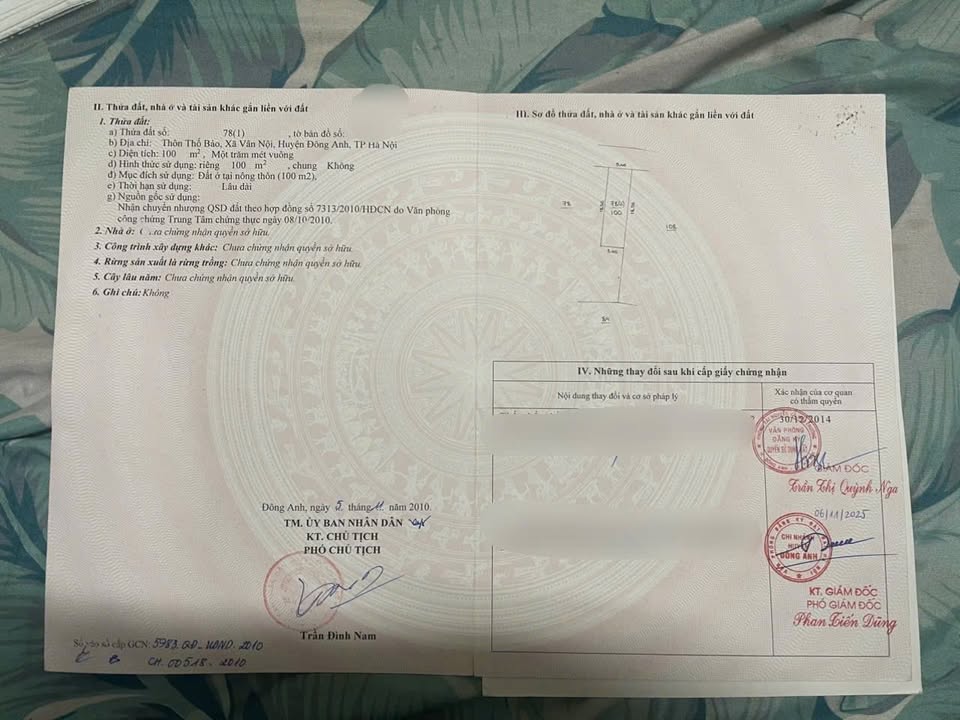 II. Thửa đất, nhà ở và tài sản khác gắn liền với đất
1. Thửa đất:
a) Thửa đất số: 78(1) , tờ bản đồ số:
b) Địa chỉ: Thôn Thổ Bảo, Xã Vân Nội, Huyện Đông Anh, TP Hà Nội
c) Diện tích: 100 m², Một trăm mét vuông
d) Hình thức sử dụng: riêng 100 m², chung Không
đ) Mục đích sử dụng: Đất ở tại nông thôn (100 m2),
e) Thời hạn sử dụng: Lâu dài
g) Nguồn gốc sử dụng:
Nhận chuyển nhượng QSD đất theo hợp đồng số 7313/2010/HĐCN do Văn phòng
công chứng Trung Tâm chứng thực ngày 08/10/2010.
2. Nhà ở: Chưa chứng nhận quyền sở hữu.
3. Công trình xây dựng khác: Chưa chứng nhận quyền sở hữu.
4. Rừng sản xuất là rừng trồng: Chưa chứng nhận quyền sở hữu.
5. Cây lâu năm: Chưa chứng nhận quyền sở hữu.
6. Ghi chú: Không
Đông Anh, ngày 5 tháng 11 năm 2010.
TM. ỦY BAN NHÂN DÂN
KT. CHỦ TỊCH
PHÓ CHỦ TỊCH
Trần Đình Nam
Số vào sổ cấp GCN: 5983.QĐ-UBND.2010
CH.00518.2010
III. Sơ đồ thửa đất, nhà ở và tài sản khác gắn liền với đất
78
78(1)
100
108
84
IV. Những thay đổi sau khi cấp giấy chứng nhận
Nội dung thay đổi và cơ sở pháp lý
Xác nhận của cơ quan
có thẩm quyền
30/12/2014
VĂN PHÒNG
ĐĂNG KÝ
QUYỀN SỬ DỤNG ĐẤT
GIÁM ĐỐC
Trần Thị Quỳnh Nga
06/11/2025
CHI NHÁNH
HUYỆN
ĐÔNG ANH
KT. GIÁM ĐỐC
PHÓ GIÁM ĐỐC
Phan Tiến Dũng